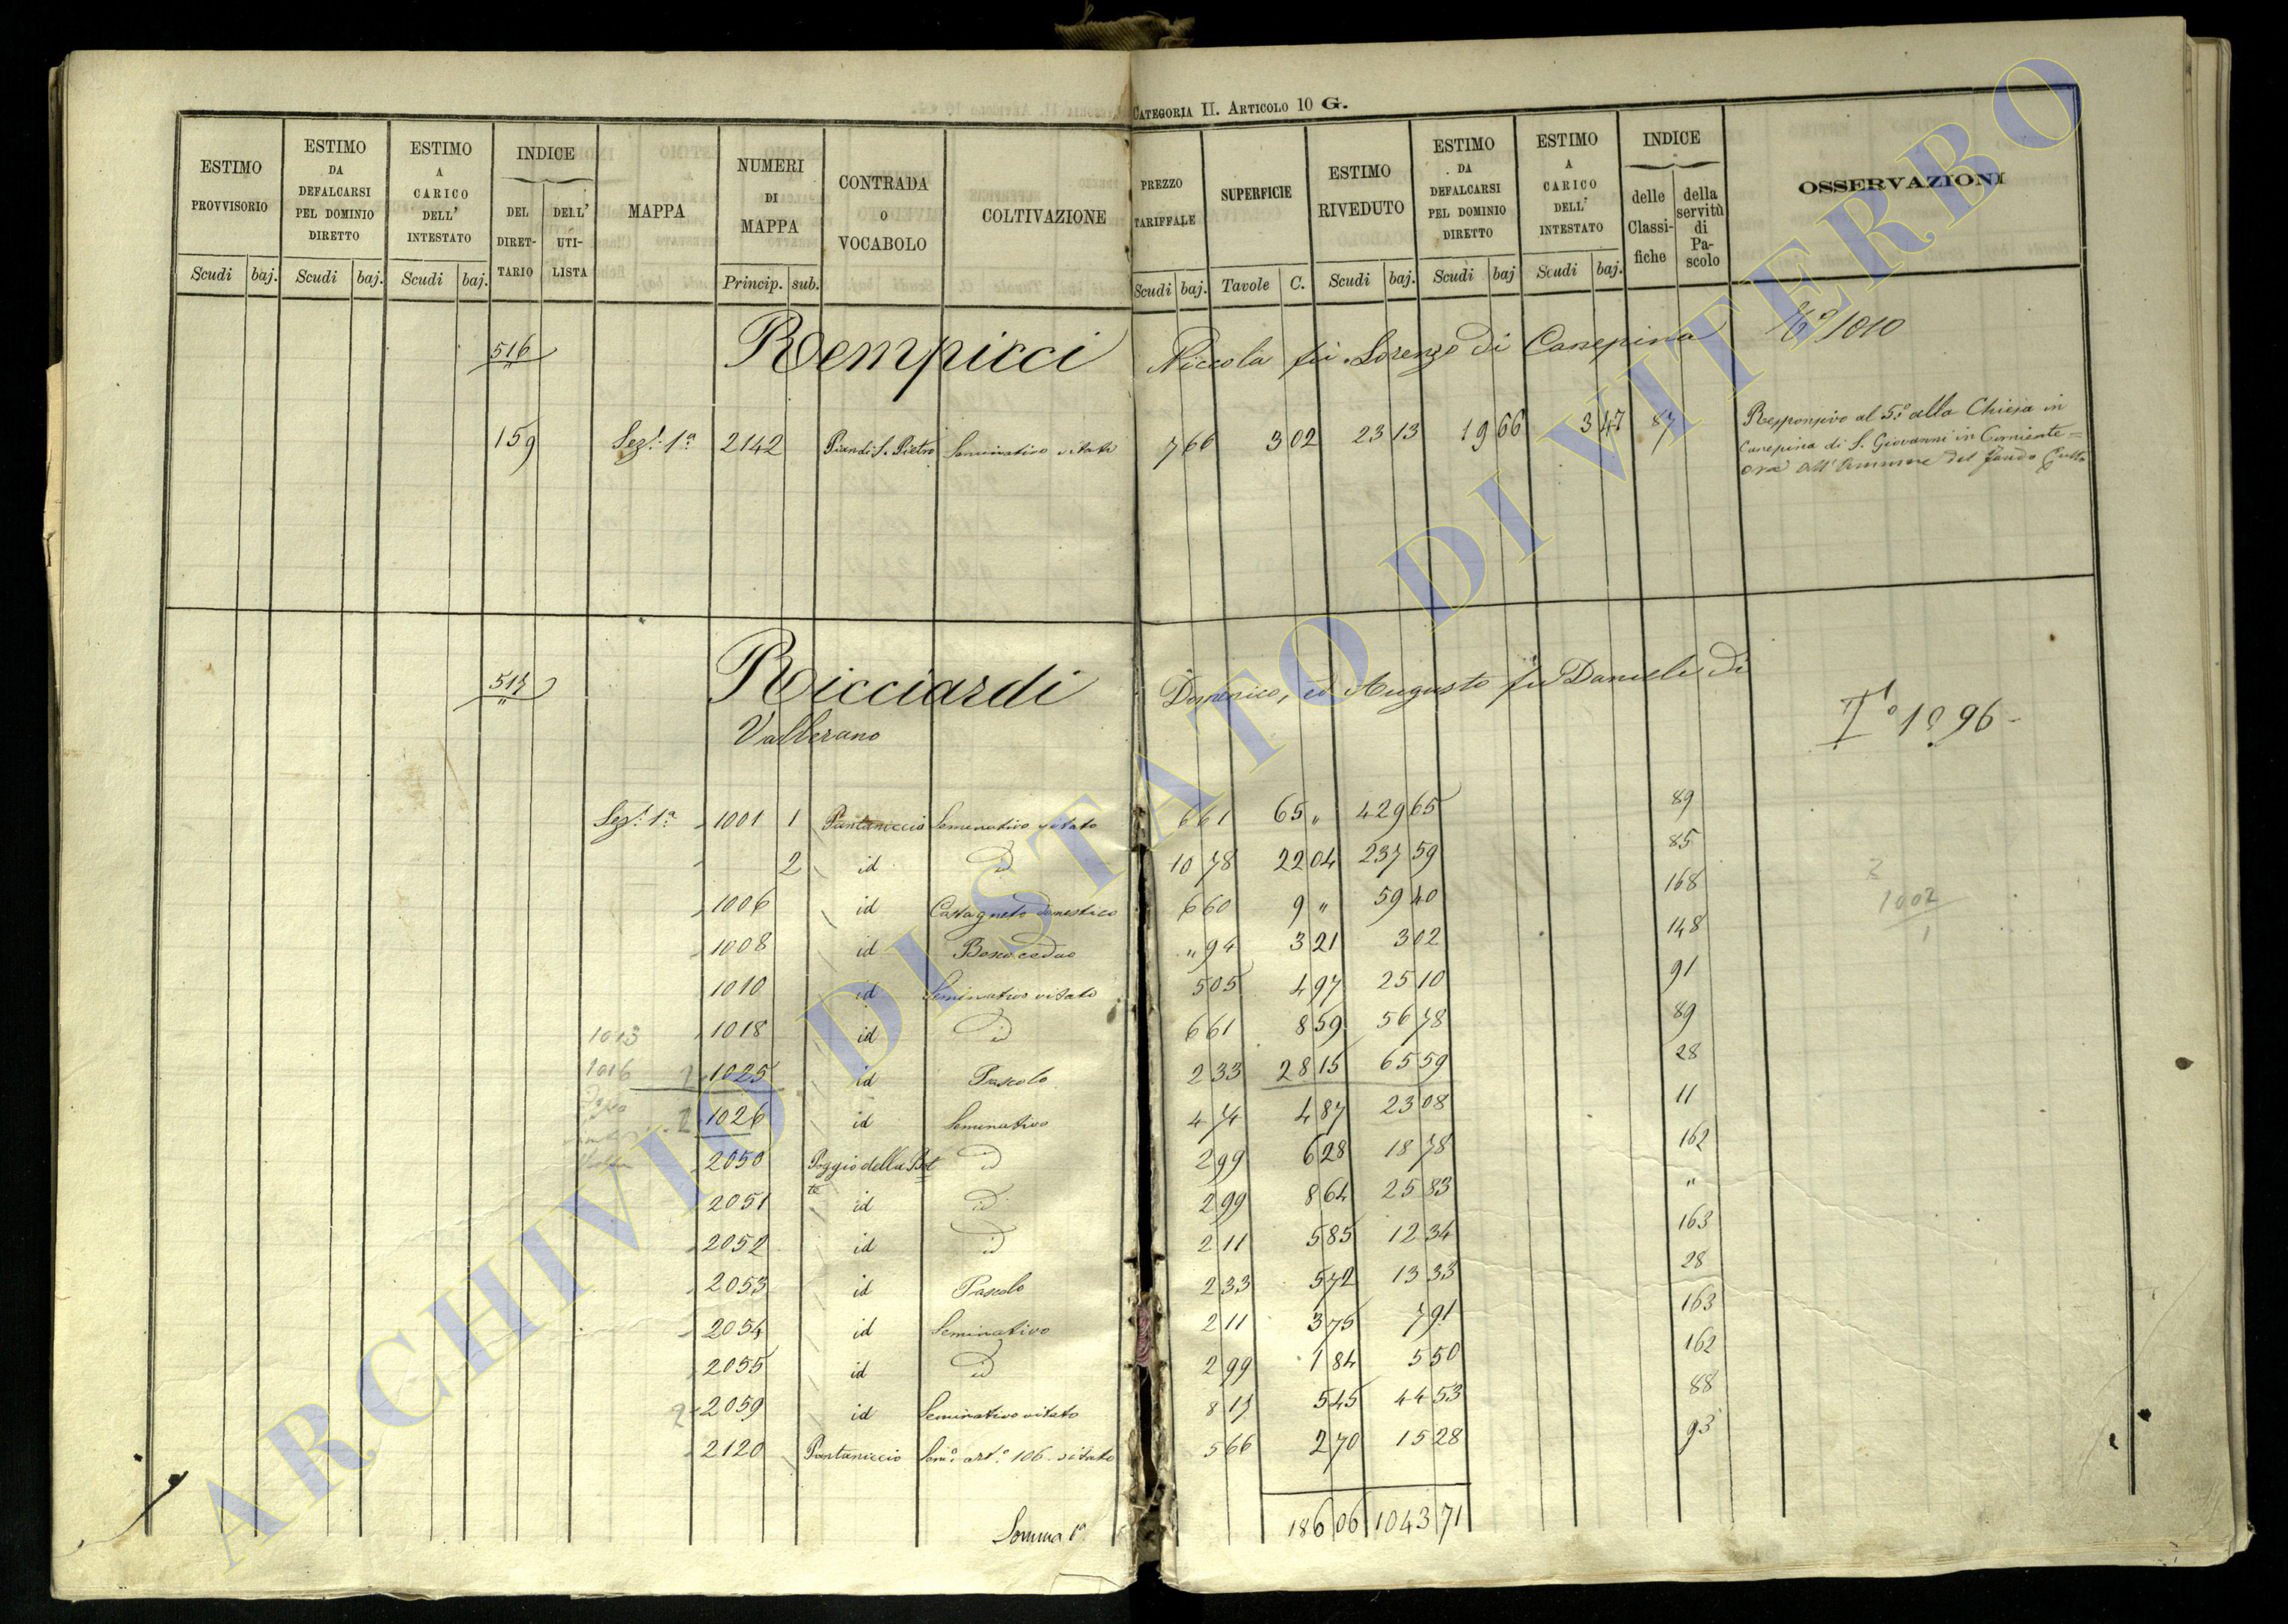 CATEGORIA II. ARTICOLO 10 G.
ESTIMO PROVVISORIO Scudi baj.
ESTIMO DA DEFALCARSI PEL DOMINIO DIRETTO Scudi baj.
ESTIMO A CARICO DELL' INTESTATO Scudi baj.
INDICE DEL DIRET-TARIO DELL' UTI-LISTA
MAPPA
NUMERI DI MAPPA Princip. sub.
CONTRADA O VOCABOLO
COLTIVAZIONE
PREZZO TARIFFALE Scudi baj.
SUPERFICIE Tavole C.
ESTIMO RIVEDUTO Scudi baj.
ESTIMO DA DEFALCARSI PEL DOMINIO DIRETTO Scudi baj
ESTIMO A CARICO DELL' INTESTATO Scudi baj.
INDICE delle Classi-fiche della servitù di Pa-scolo
OSSERVAZIONI
516 Rempicci Niccola fu Lorenzo di Canepina 1010
159 Sez. 1ª 2142 Pian di S. Pietro Seminativo vitato 7 66 3 02 23 13 19 66 3 47 87 Responsivo al 5º alla Chiesa in
Canepina di S. Giovanni in
ora del fondo
517 Ricciardi Domenico, ed Augusto fu Daniele di
Vallerano
Tº 1096
Sez. 1ª 1001 1 Pantaniccio Seminativo vitato 6 61 65 " 429 65 89
2 id id 10 78 22 04 237 59 85
1006 id Castagneto domestico 6 60 9 " 59 40 168
1008 id Bosco ceduo " 94 3 21 3 02 148
1010 id Seminativo vitato 5 05 4 97 25 10 91
1018 id id 6 61 8 59 56 78 89
1025 id Pascolo 2 33 28 15 65 59 28
1026 id Seminativo 4 74 4 87 23 08 11
2050 Poggio della Bot te id 2 99 6 28 18 78 162
2051 id id 2 99 8 64 25 83 "
2052 id id 2 11 5 85 12 34 163
2053 id Pascolo 2 33 5 72 13 33 28
2054 id Seminativo 2 11 3 75 7 91 163
2055 id id 2 99 1 84 5 50 162
2059 id Seminativo vitato 8 17 5 45 44 53 88
2120 Pantaniccio Semº art.º 106 vitato 5 66 2 70 15 28 93
Somma 1ª 186 06 1043 71
1013
1016
2
1002
1
ARCHIVIO DI STATO DI VITERBO